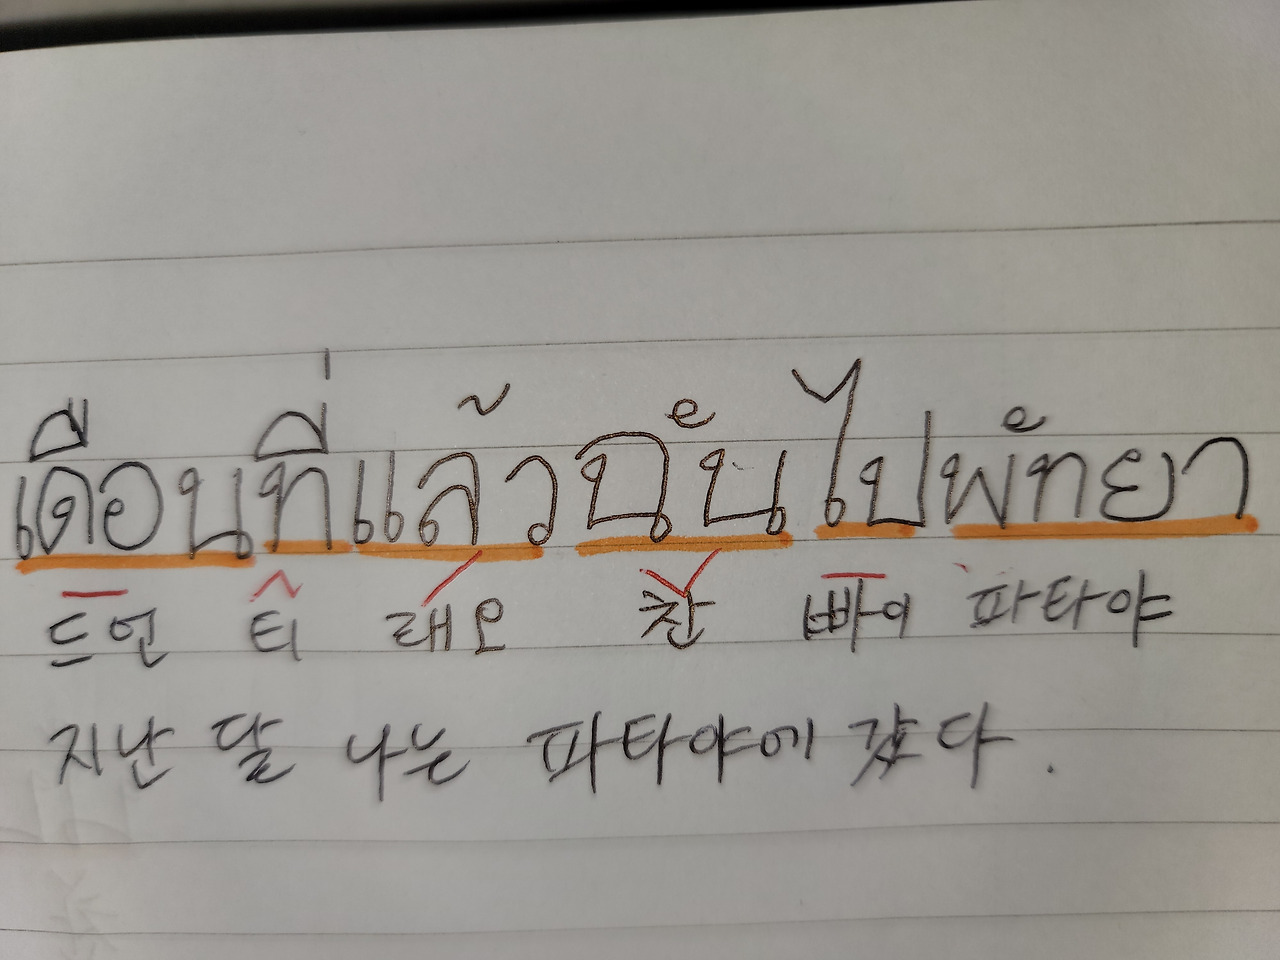 เดือนที่แล้วฉันไปพัทยา
드언 티 래오 찬 빠이 파타야
지난 달 나는 파타야에 갔다.